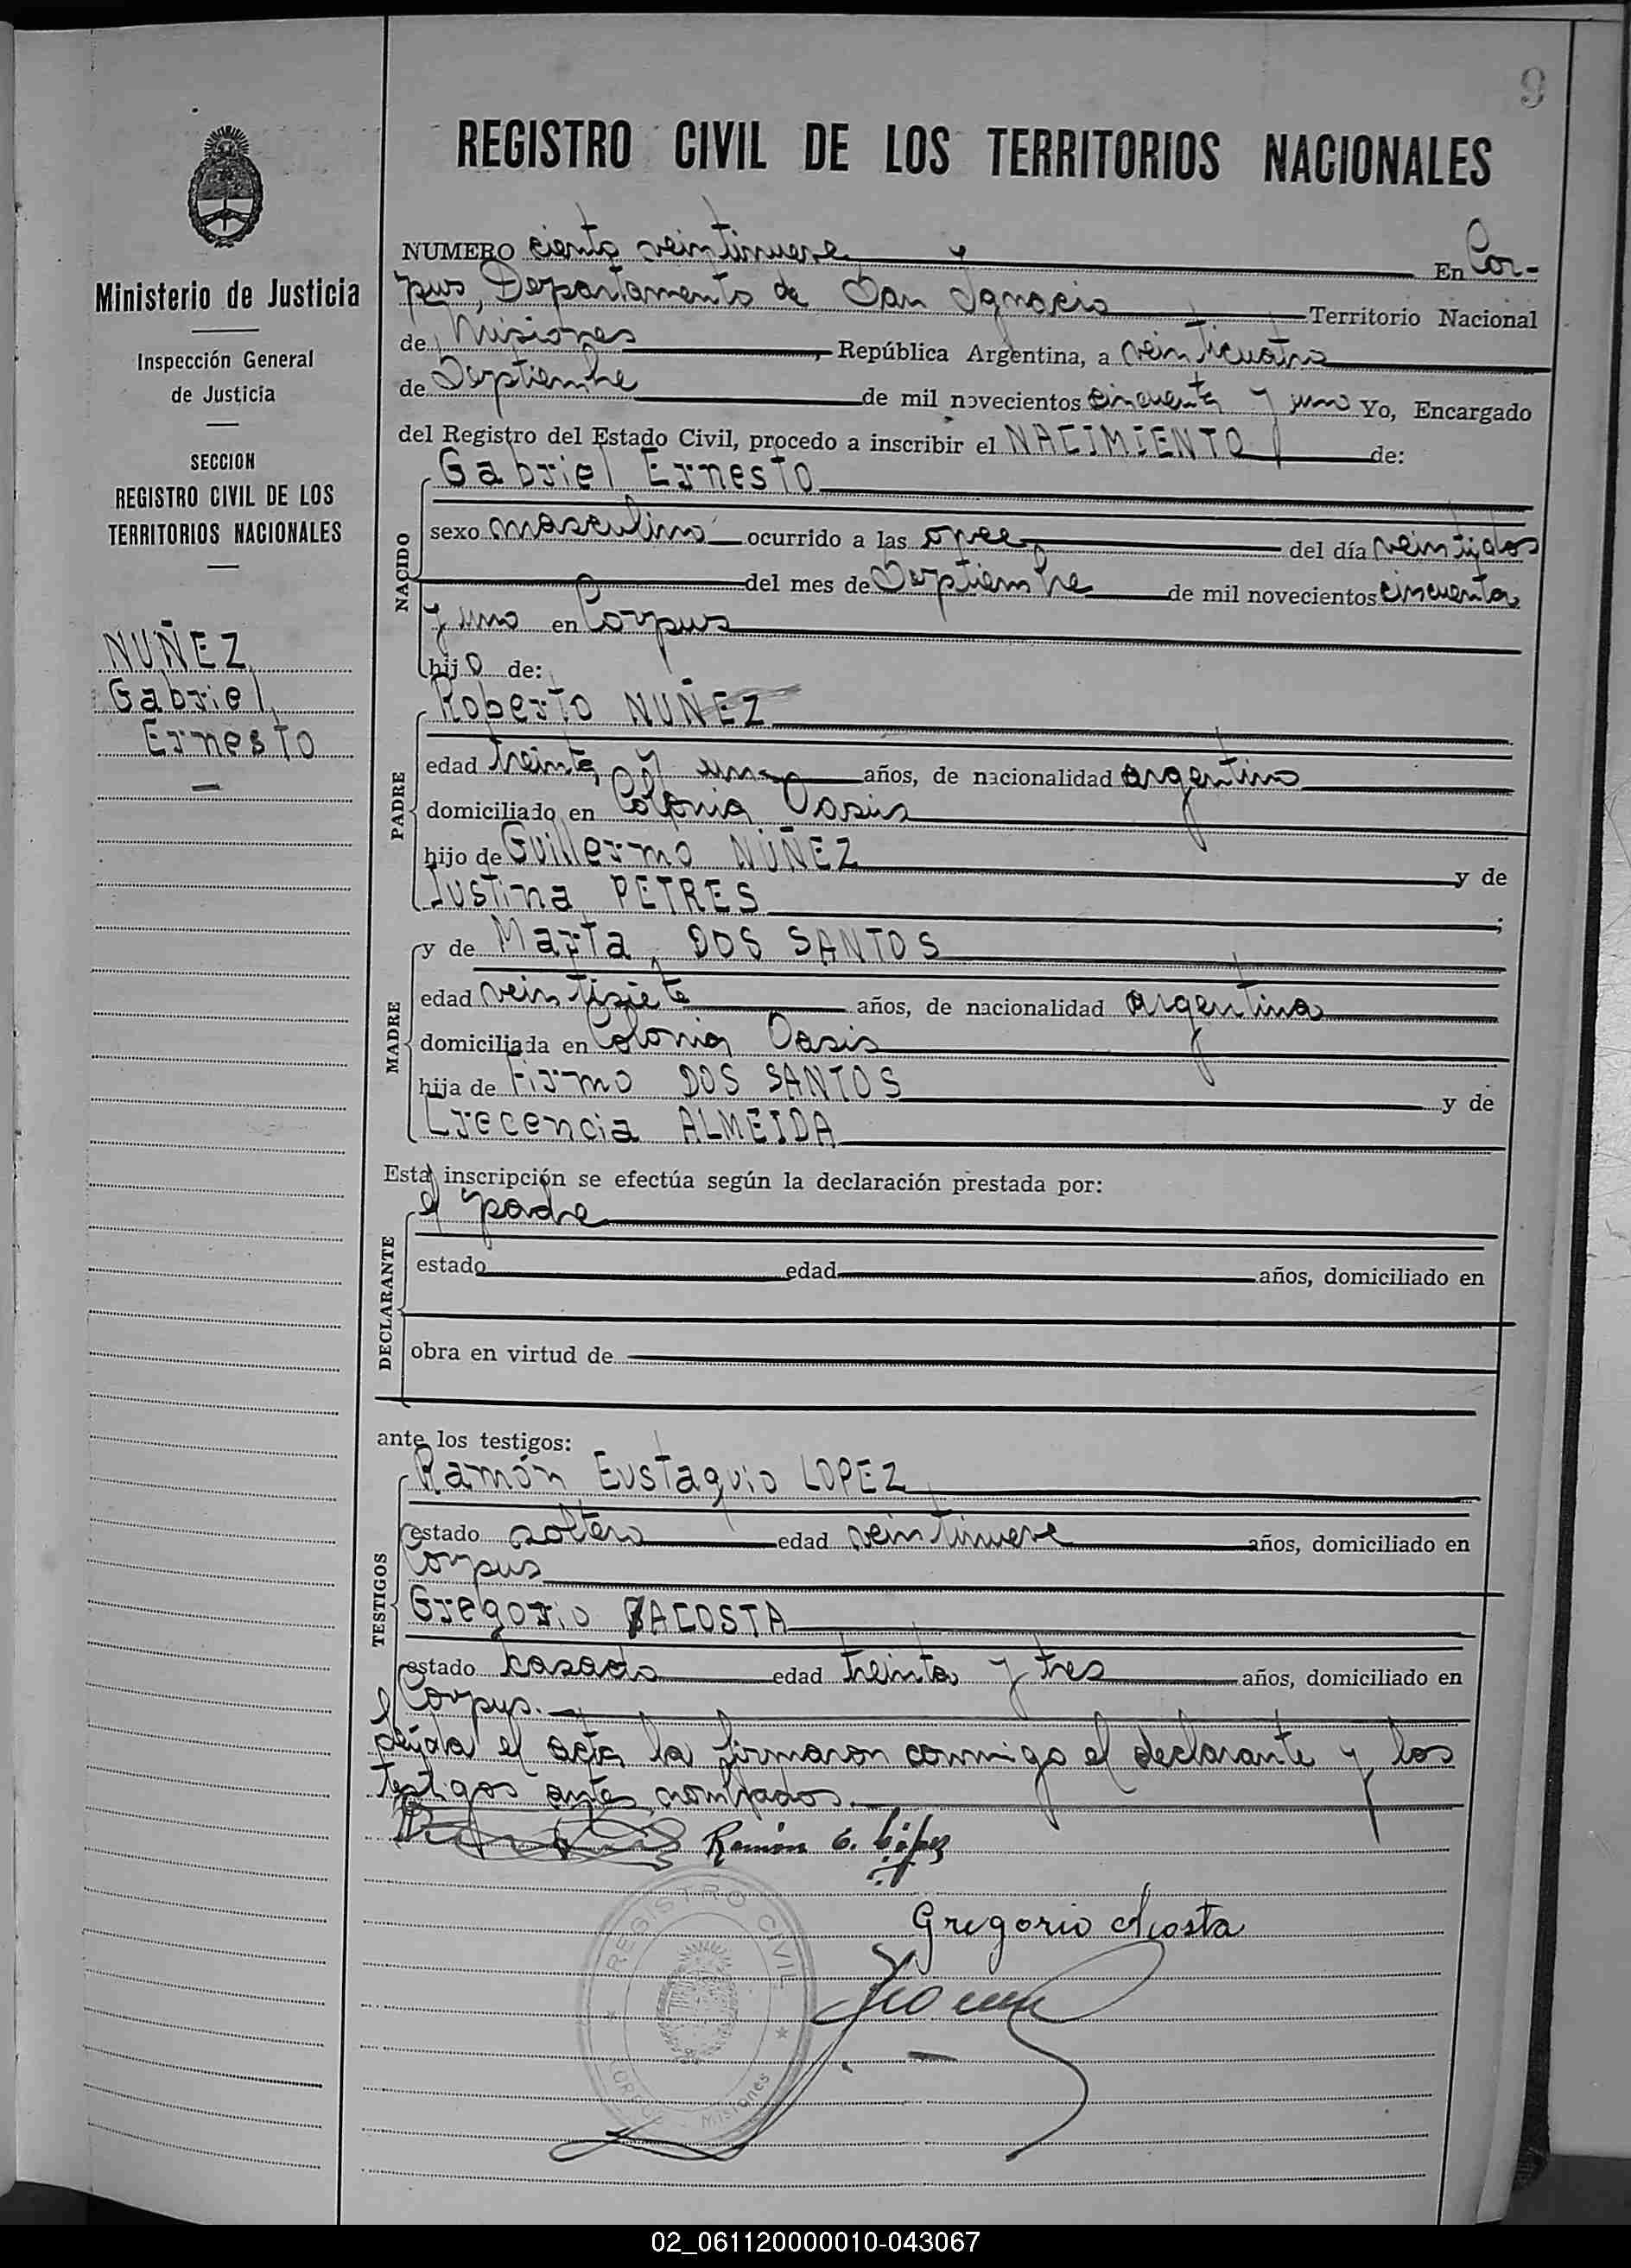 9
REGISTRO CIVIL DE LOS TERRITORIOS NACIONALES
Ministerio de Justicia
Inspección General
de Justicia
SECCION
REGISTRO CIVIL DE LOS
TERRITORIOS NACIONALES
NUÑEZ
Gabriel
Ernesto
NUMERO ciento veintinueve En Cor-
pus, Departamento de San Ignacio Territorio Nacional
de Misiones, República Argentina, a veinticuatro
de Septiembre de mil novecientos cincuenta y uno Yo, Encargado
del Registro del Estado Civil, procedo a inscribir el NACIMIENTO de:
Gabriel Ernesto
NACIDO
sexo masculino ocurrido a las once del día veintidos
del mes de Septiembre de mil novecientos cincuenta
y uno en Corpus
hijo de:
Roberto NUÑEZ
PADRE
edad treinta y uno años, de nacionalidad argentino
domiciliado en Colonia Oasis
hijo de Guillermo NUÑEZ y de
Justina PETRES;
MADRE
y de Marta DOS SANTOS
edad veintisiete años, de nacionalidad Argentina
domiciliada en Colonia Oasis
hija de Firmo DOS SANTOS y de
Crecencia ALMEIDA
Esta inscripción se efectúa según la declaración prestada por:
el padre
DECLARANTE
estado edad años, domiciliado en
obra en virtud de
ante los testigos:
Ramón Eustaquio LOPEZ
TESTIGOS
estado soltero edad veintinueve años, domiciliado en
Corpus
Gregorio ACOSTA
estado casado edad treinta y tres años, domiciliado en
Corpus.
leída el acta la firmaron conmigo el declarante y los
testigos antes nombrados.
Ramón E. López
Gregorio Acosta
REGISTRO CIVIL
CORPUS Misiones
02_061120000010-043067